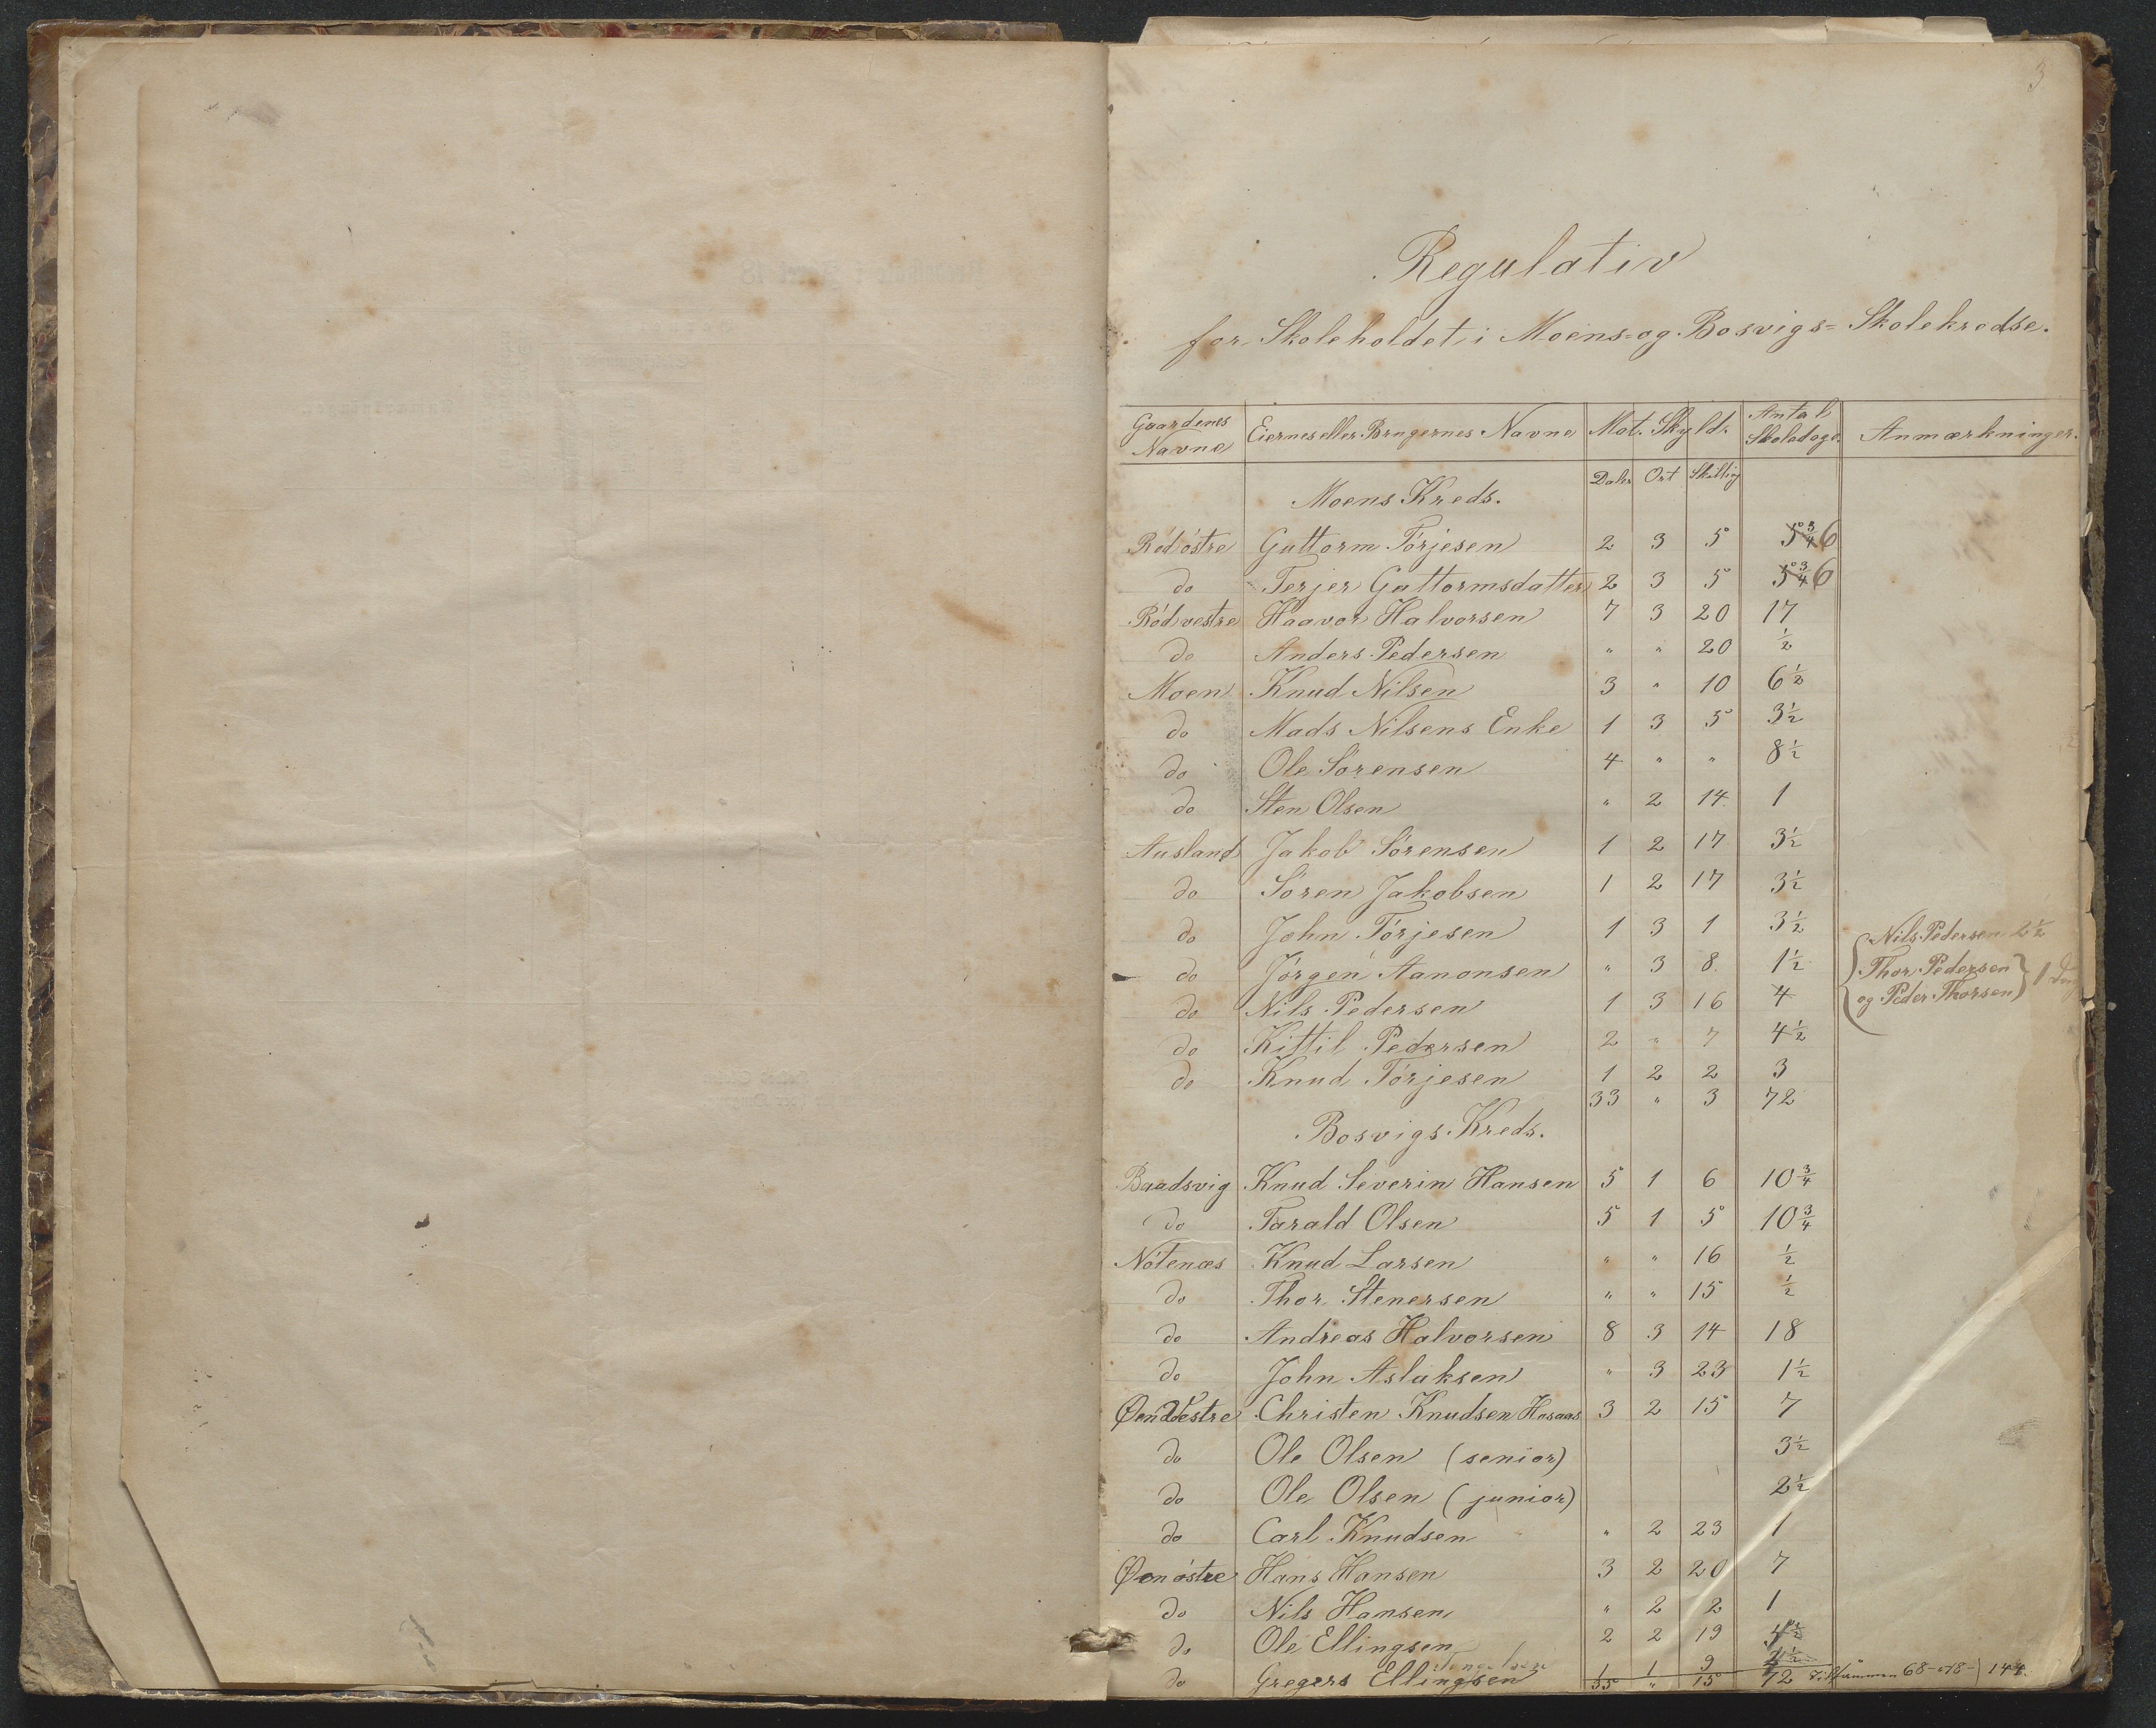 3
Regulativ
for Skoleholdet i Moens- og Bosvigs- Skolekredse.
Gaardenes Navne | Eiernes eller Brugernes Navne | Mat. Skyld. | Antal Skoledage. | Anmærkninger.
Daler | Ort | Skilling
Moens Kreds.
Röd östre | Guttorm Törjesen | 2 | 3 | 5 | 5 3/4 6
do | Terjer Guttormsdatter | 2 | 3 | 5 | 5 3/4 6
Röd vestre | Haavor Halvorsen | 7 | 3 | 20 | 17
do | Anders Pedersen | " | " | 20 | 1/2
Moen | Knud Nilsen | 3 | " | 10 | 6 1/2
do | Mads Nilsens Enke | 1 | 3 | 5 | 3 1/2
do | Ole Sörensen | 4 | " | " | 8 1/2
do | Sten Olsen | " | 2 | 14 | 1
Ausland | Jakob Sörensen | 1 | 2 | 17 | 3 1/2
do | Sören Jakobsen | 1 | 2 | 17 | 3 1/2
do | John Törjesen | 1 | 3 | 1 | 3 1/2 | Nils Pedersen 2 1/2
do | Jörgen Aanonsen | " | 3 | 8 | 1 1/2 | Thor Pedersen
do | Nils Pedersen | 1 | 3 | 16 | 4 | og Peder Thorsen } 1
do | Kittil Pedersen | 2 | " | 7 | 4 1/2
do | Knud Törjesen | 1 | 2 | 2 | 3
33 | " | 3 | 72
Bosvigs Kreds.
Baadsvig | Knud Severin Hansen | 5 | 1 | 6 | 10 3/4
do | Tarald Olsen | 5 | 1 | 5 | 10 3/4
Nötenæs | Knud Larsen | " | " | 16 | 1/2
do | Thor Stenersen | " | " | 15 | 1/2
do | Andreas Halvorsen | 8 | 3 | 14 | 18
do | John Aslaksen | " | 3 | 23 | 1 1/2
Øen Vestre | Christen Knudsen HaSaas | 3 | 2 | 15 | 7
do | Ole Olsen (senior) | 3 1/2
do | Ole Olsen (junior) | 2 1/2
do | Carl Knudsen | " | 2 | 23 | 1
Øen östre | Hans Hansen | 3 | 2 | 20 | 7
do | Nils Hansen | " | 2 | 2 | 1
do | Ole Ellingsen | 2 | 2 | 19
do | Gregers Ellingsen | 1 | 1 | 9
35 | " | 15 | 72 Tilsammen 68-18- | 144.